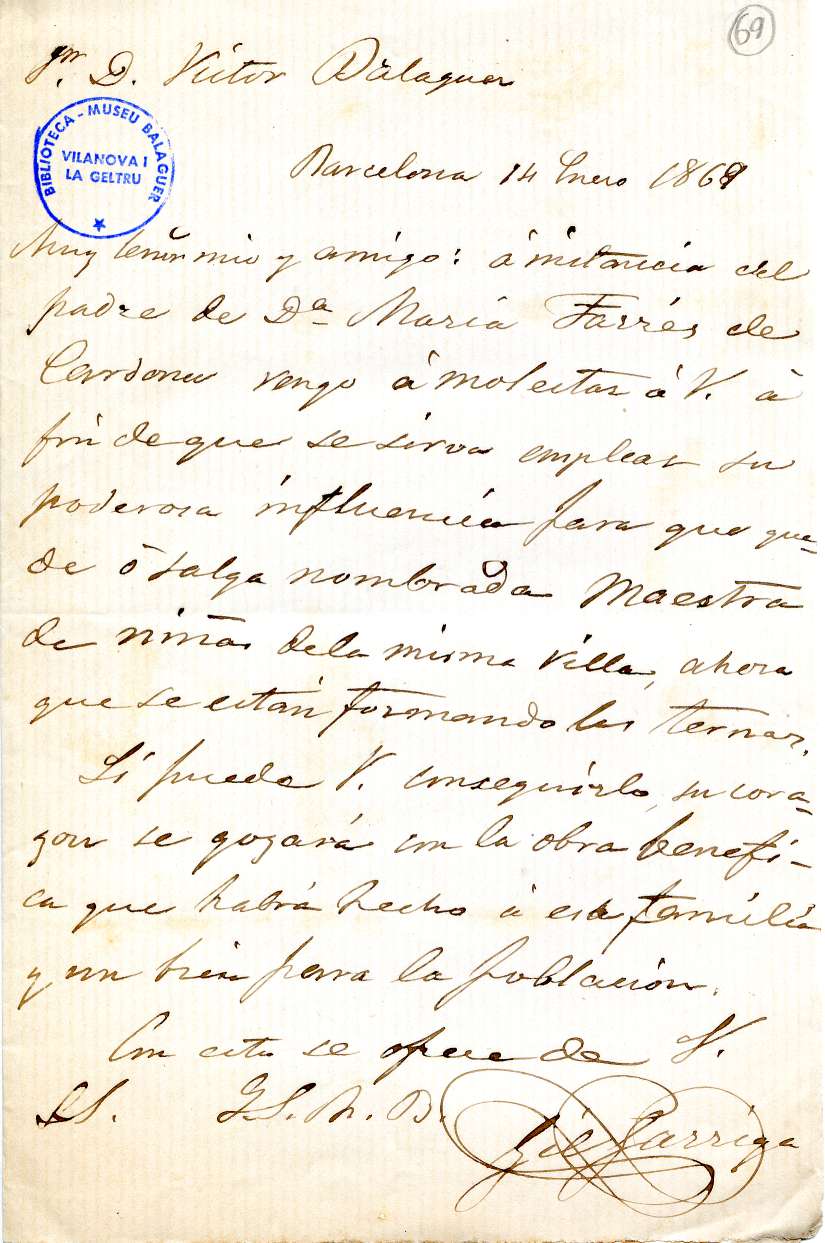 69
Sr. D. Víctor Balaguer
BIBLIOTECA - MUSEU BALAGUER
VILANOVA I
LA GELTRU
Barcelona 14 Enero 1869
Muy señor mio y amigo: á instancia del
padre de Dª María Farrés de
Cardona vengo á molestar á V. á
fin de que se sirva emplear su
poderosa influencia para que que-
de ó salga nombrada Maestra
de niñas de la misma villa, ahora
que se están formando las ternas.
Si puede V. conseguirlo, su cora-
zon se gozará con la obra benéfi-
ca que habrá hecho á esta família
y un bien para la población.
Con esto se ofrece de V.
S.S. Q.S.M.B.
Gil Garriga